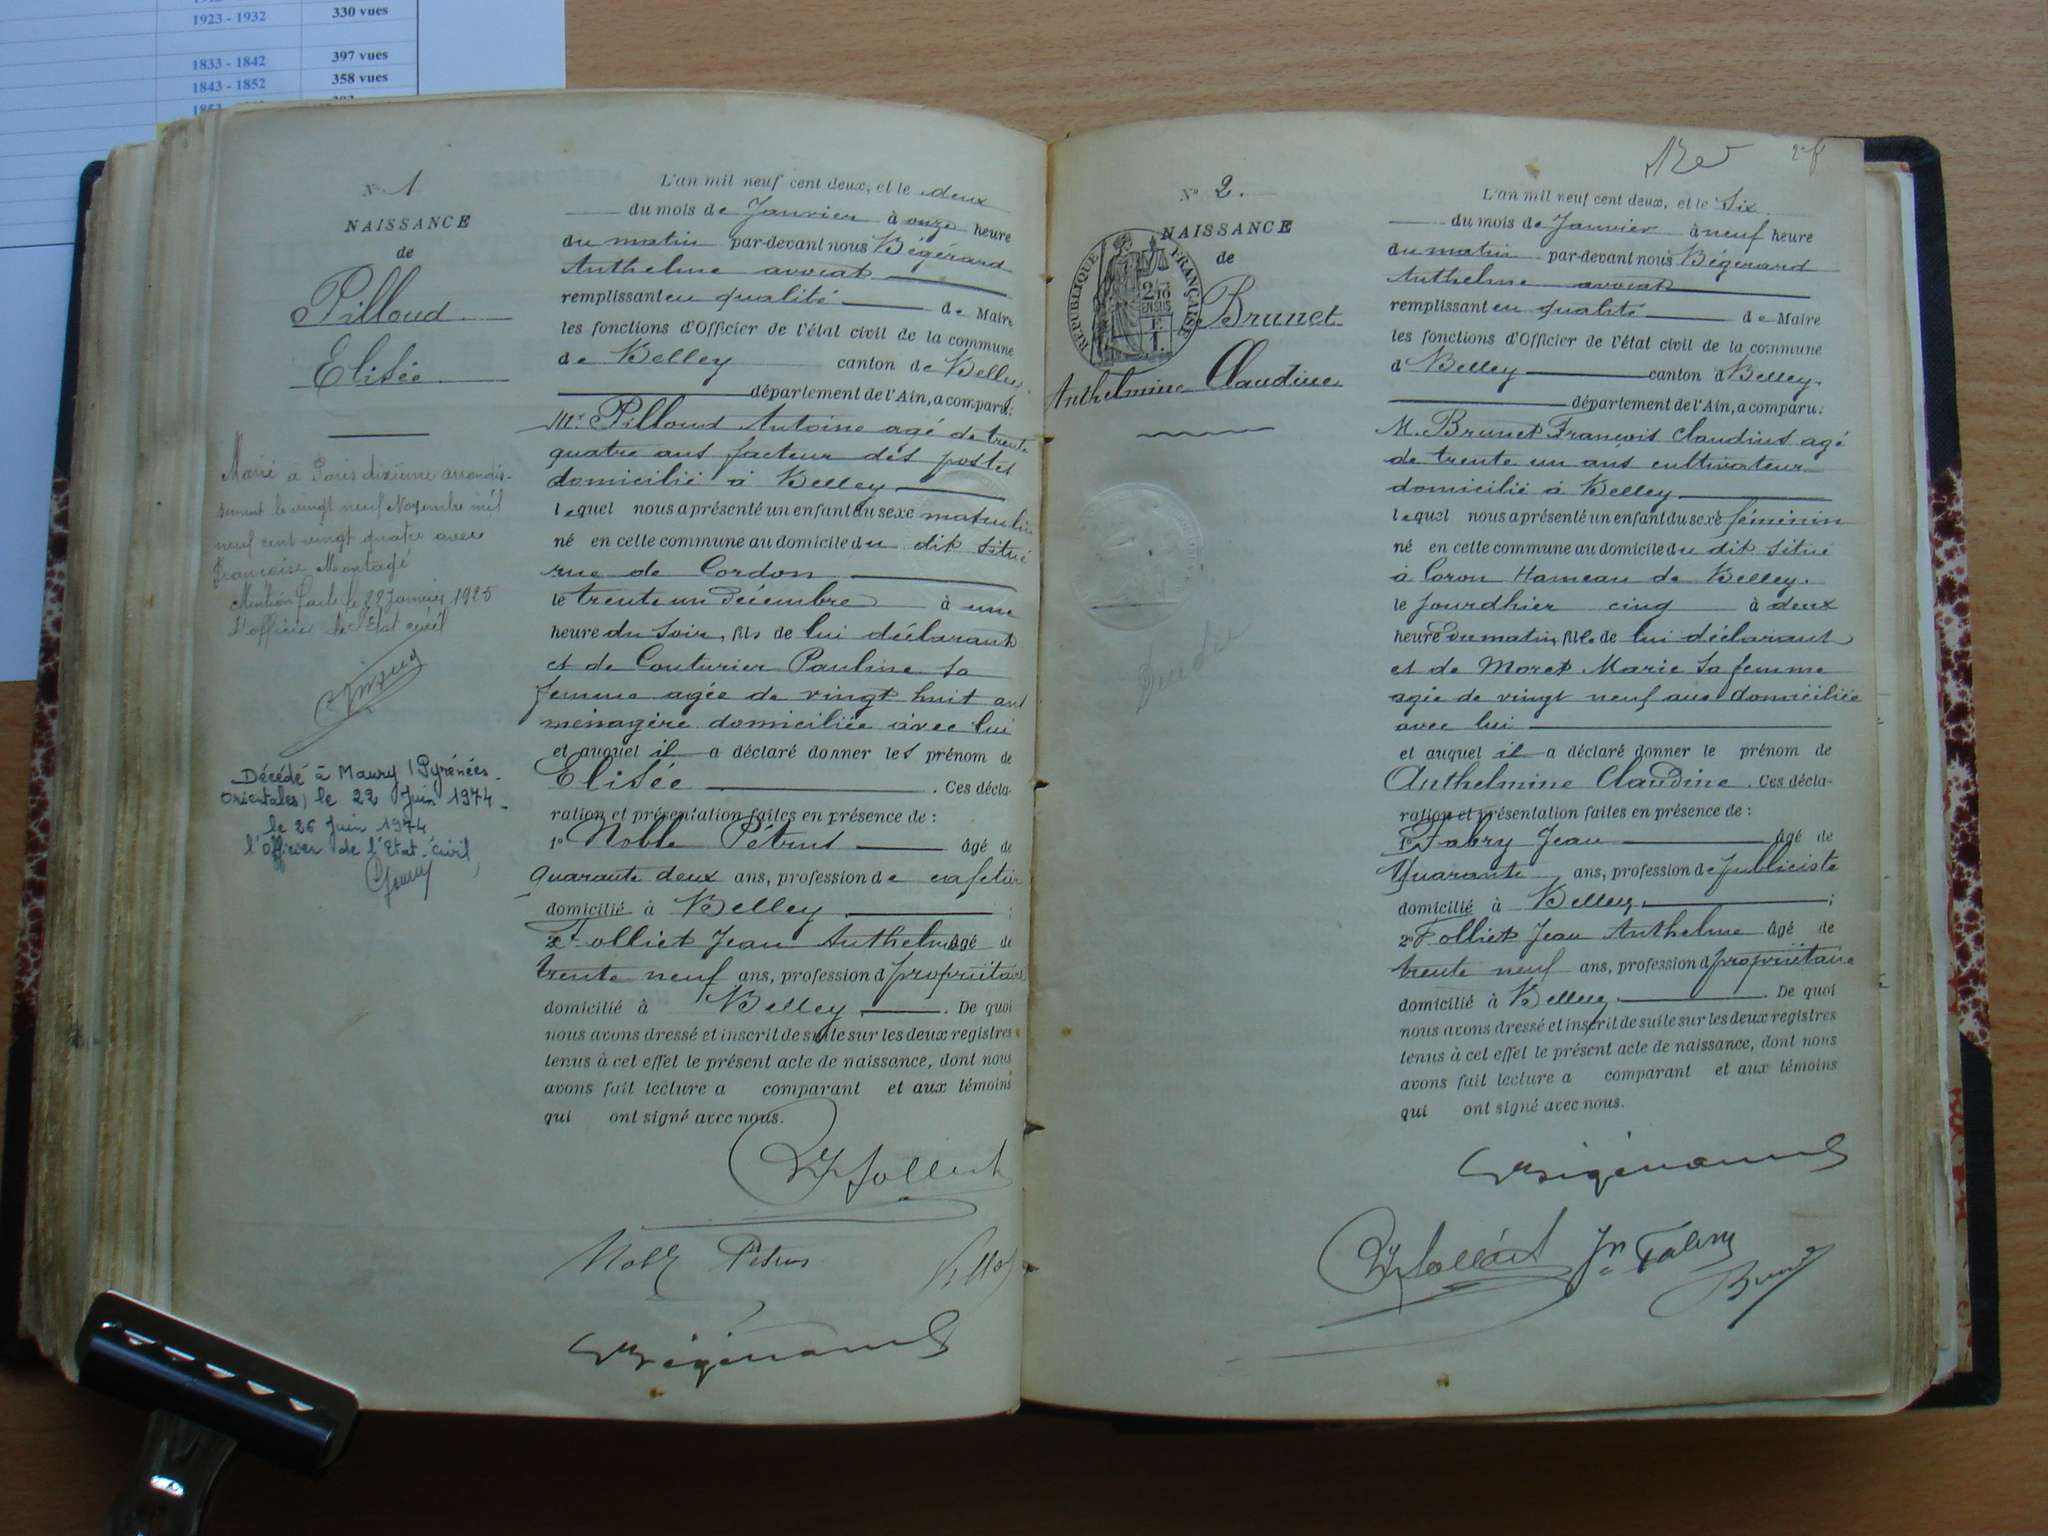 1923 - 1932 330 vues
1833 - 1842 397 vues
1843 - 1852 358 vues
N° 1
NAISSANCE
de
Pilloud
Elisée
Marié à Paris dixième arrondis-
sement le vingt neuf Novembre mil
neuf cent vingt quatre avec
Françoise Montagé
Mention faite le 22 Janvier 1925
L'officier de l'Etat civil
Décédé à Maury (Pyrénées-
Orientales) le 22 Juin 1974-
le 26 Juin 1974
l'Officier de l'Etat-civil,
L'an mil neuf cent deux, et le deux
du mois de Janvier à onze heure
du matin par-devant nous Bégérard
Anthelme avocat
remplissant en qualité de Maire
les fonctions d'Officier de l'état civil de la commune
de Belley canton de Belley
département de l'Ain, a comparu:
Mr Pilloud Antoine agé de trente
quatre ans facteur des postes
domicilié à Belley
lequel nous a présenté un enfant du sexe masculin
né en cette commune au domicile du dit situé
rue de Cordon
le trente un Décembre à une
heure du soir, fils de lui déclarant
et de Couturier Pauline sa
femme agée de vingt huit ans
ménagère domiciliée avec lui
et auquel il a déclaré donner les prénom de
Elisée . Ces décla-
ration et présentation faites en présence de :
1° Noble Pétrus âgé de
quarante deux ans, profession de cafetier
domicilié à Belley ;
2° Folliet Jean Anthelme âgé de
trente neuf ans, profession d propriétaire
domicilié à Belley . De quoi
nous avons dressé et inscrit de suite sur les deux registres
tenus à cet effet le présent acte de naissance, dont nous
avons fait lecture a comparant et aux témoins
qui ont signé avec nous.
Noble Pétrus
N° 2.
NAISSANCE
de
RÉPUBLIQUE FRANÇAISE
2/10
EN SUS
Brunet
Anthelmine Claudine
2e f
L'an mil neuf cent deux, et le Six
du mois de Janvier à neuf heure
du matin par-devant nous Bégérard
Anthelme avocat
remplissant en qualité de Maire
les fonctions d'Officier de l'état civil de la commune
d Belley canton d Belley
département de l'Ain, a comparu:
M. Brunet François Claudius agé
de trente un ans cultivateur
domicilié à Belley
lequel nous a présenté un enfant du sexe féminin
né en cette commune au domicile du dit situé
à Coron Hameau de Belley.
le jourdhier cinq à deux
heure du matin, fille de lui déclarant
et de Moret Marie sa femme
agée de vingt neuf ans domiciliée
avec lui
et auquel il a déclaré donner le prénom de
Anthelmine Claudine . Ces décla-
ration et présentation faites en présence de :
1° Fabry Jean âgé de
Quarante ans, profession de publiciste
domicilié à Belley ;
2° Folliet Jean Anthelme âgé de
trente neuf ans, profession d propriétaire
domicilié à Belley . De quoi
nous avons dressé et inscrit de suite sur les deux registres
tenus à cet effet le présent acte de naissance, dont nous
avons fait lecture a comparant et aux témoins
qui ont signé avec nous.
Jn Fabry